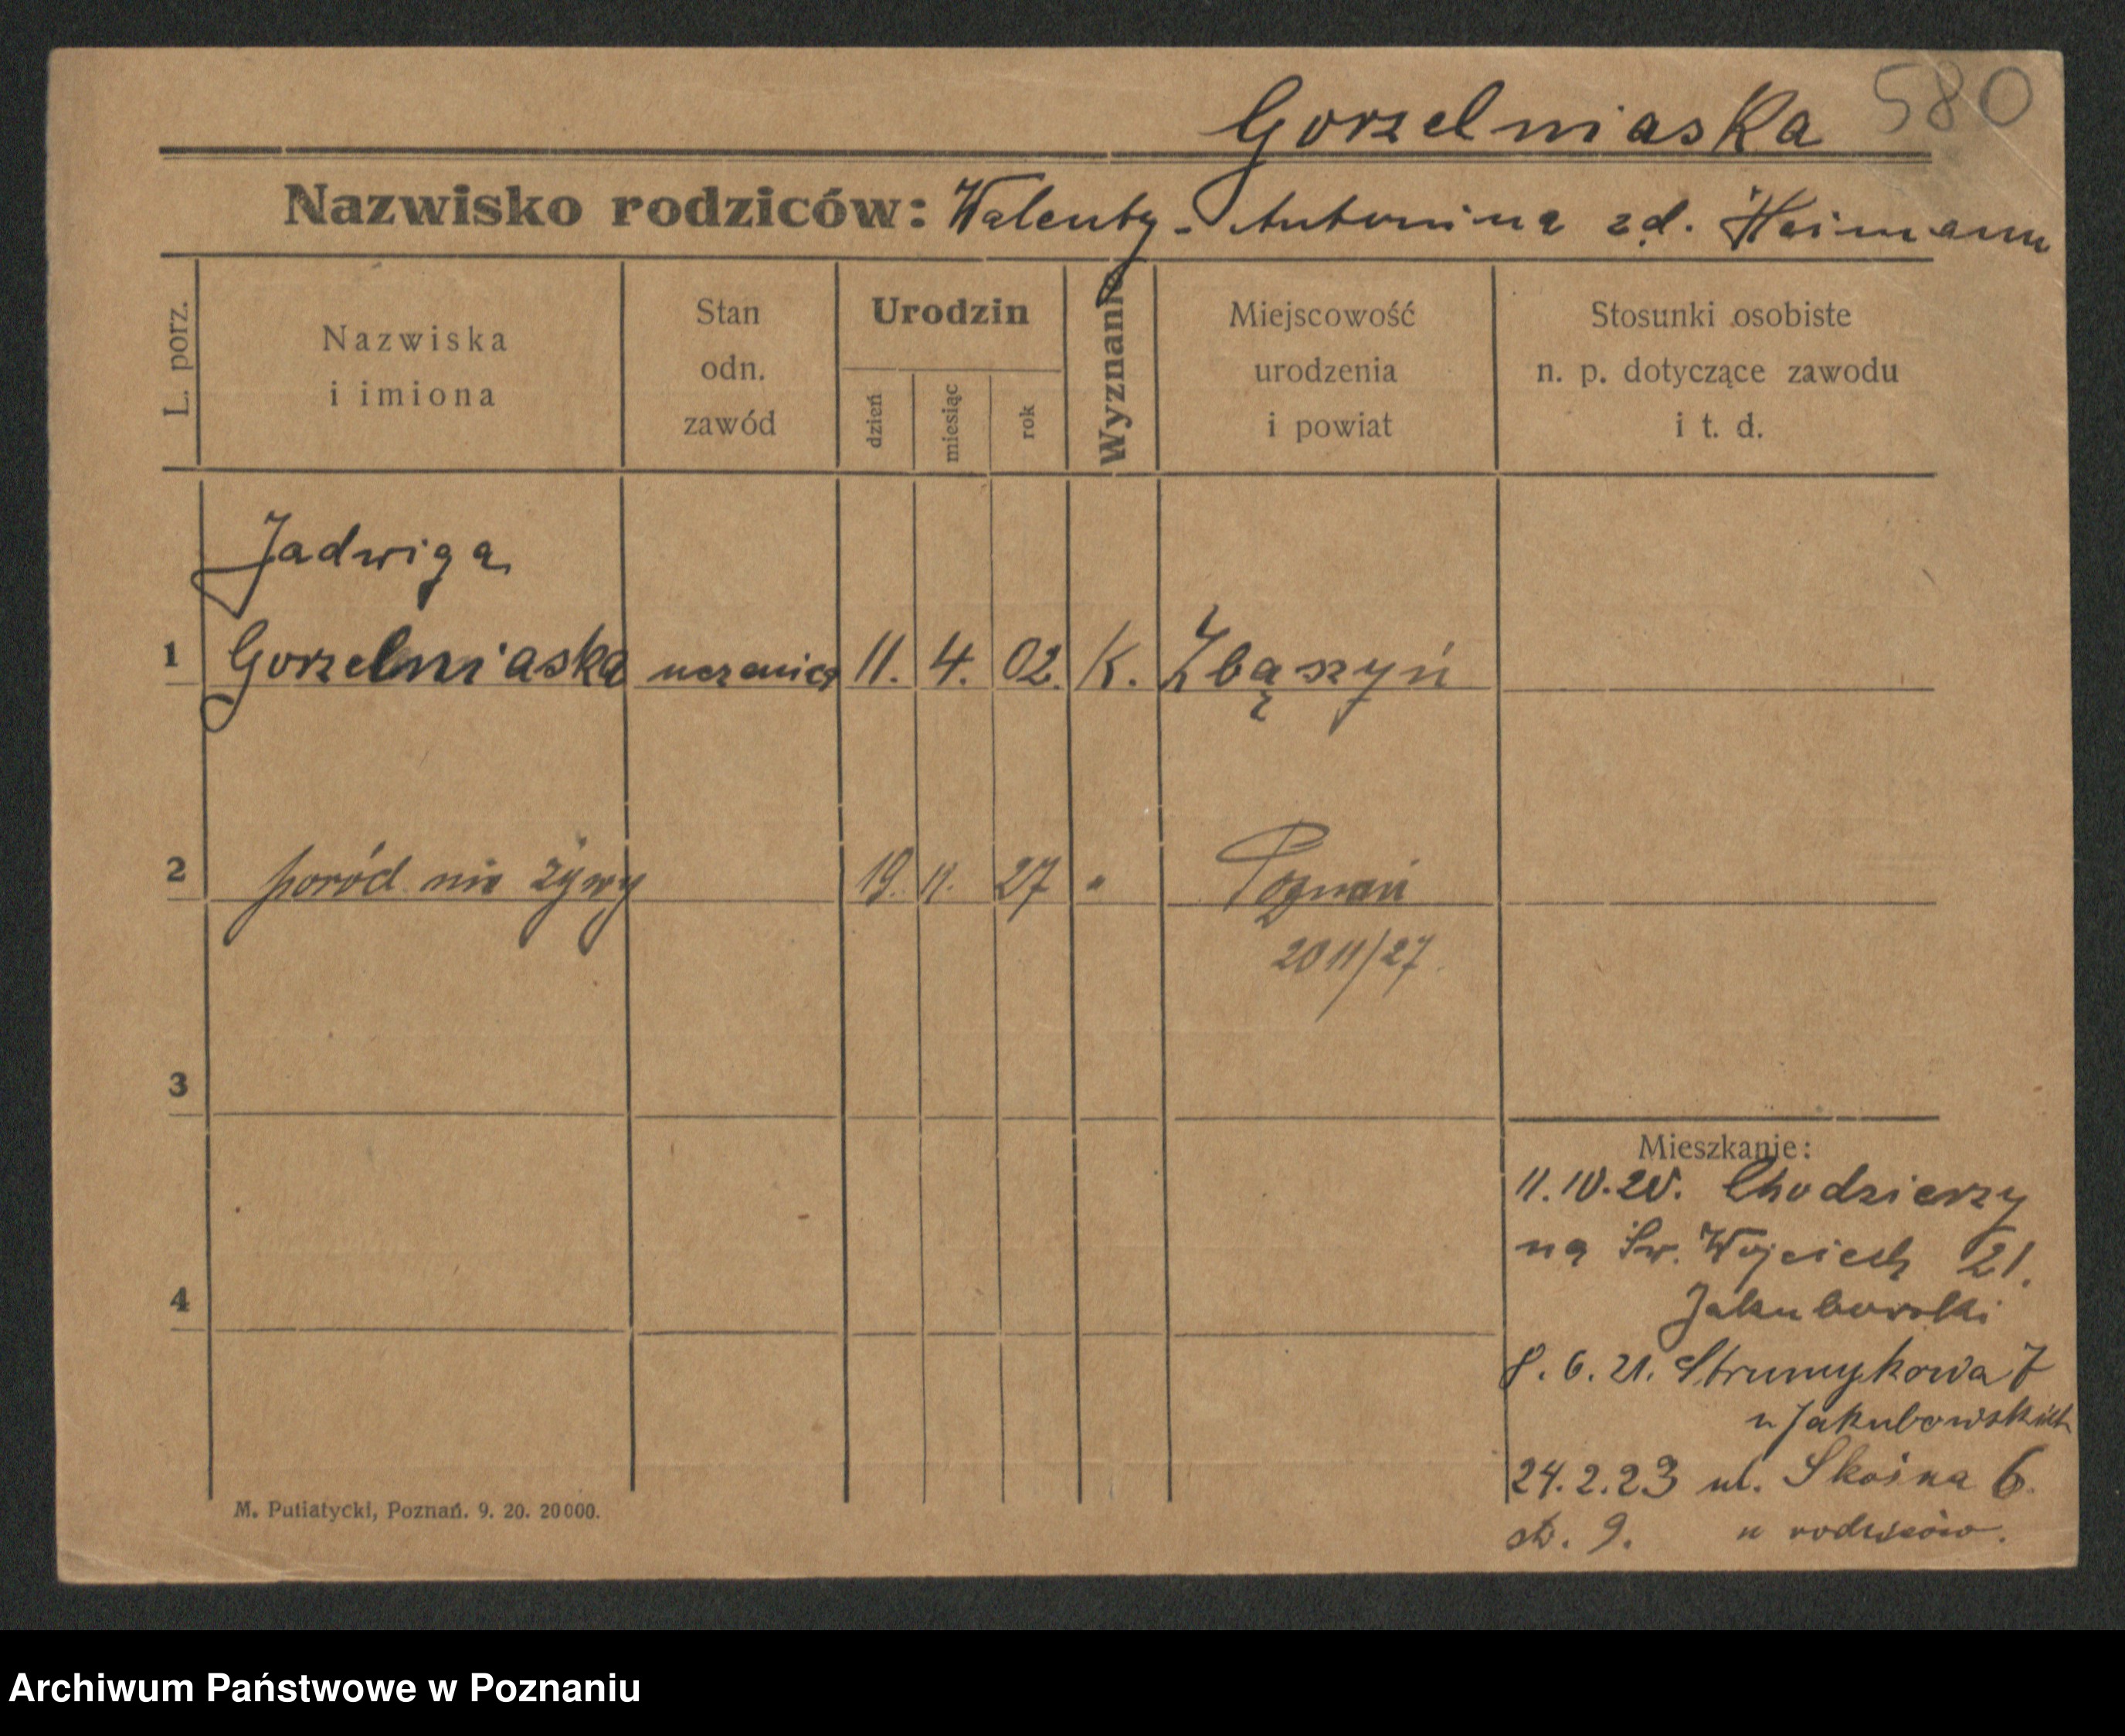 580
Gorzelniaska
Nazwisko rodziców: Walenty - Antonina zd. Heimann
L. porz.
Nazwiska
i imiona
Stan
odn.
zawód
Urodzin
dzień
miesiąc
rok
Wyznanie
Miejscowość
urodzenia
i powiat
Stosunki osobiste
n. p. dotyczące zawodu
i t. d.
Jadwiga
1 Gorzelniaska uczenica 11. 4. 02. K. Zbąszyń
2 poród nie żywy 19. 11. 27 " Poznań
20 11/27.
3
4
Mieszkanie:
11.10.20. Chodzierzy
na Św. Wojciech 21.
Jakubowski
8. 6. 21. Strumykowa 7
u Jakubowskich
24.2.23 ul. Skośna 6.
st. 9. u rodziców.
M. Putiatycki, Poznań. 9. 20. 20000.
Archiwum Państwowe w Poznaniu